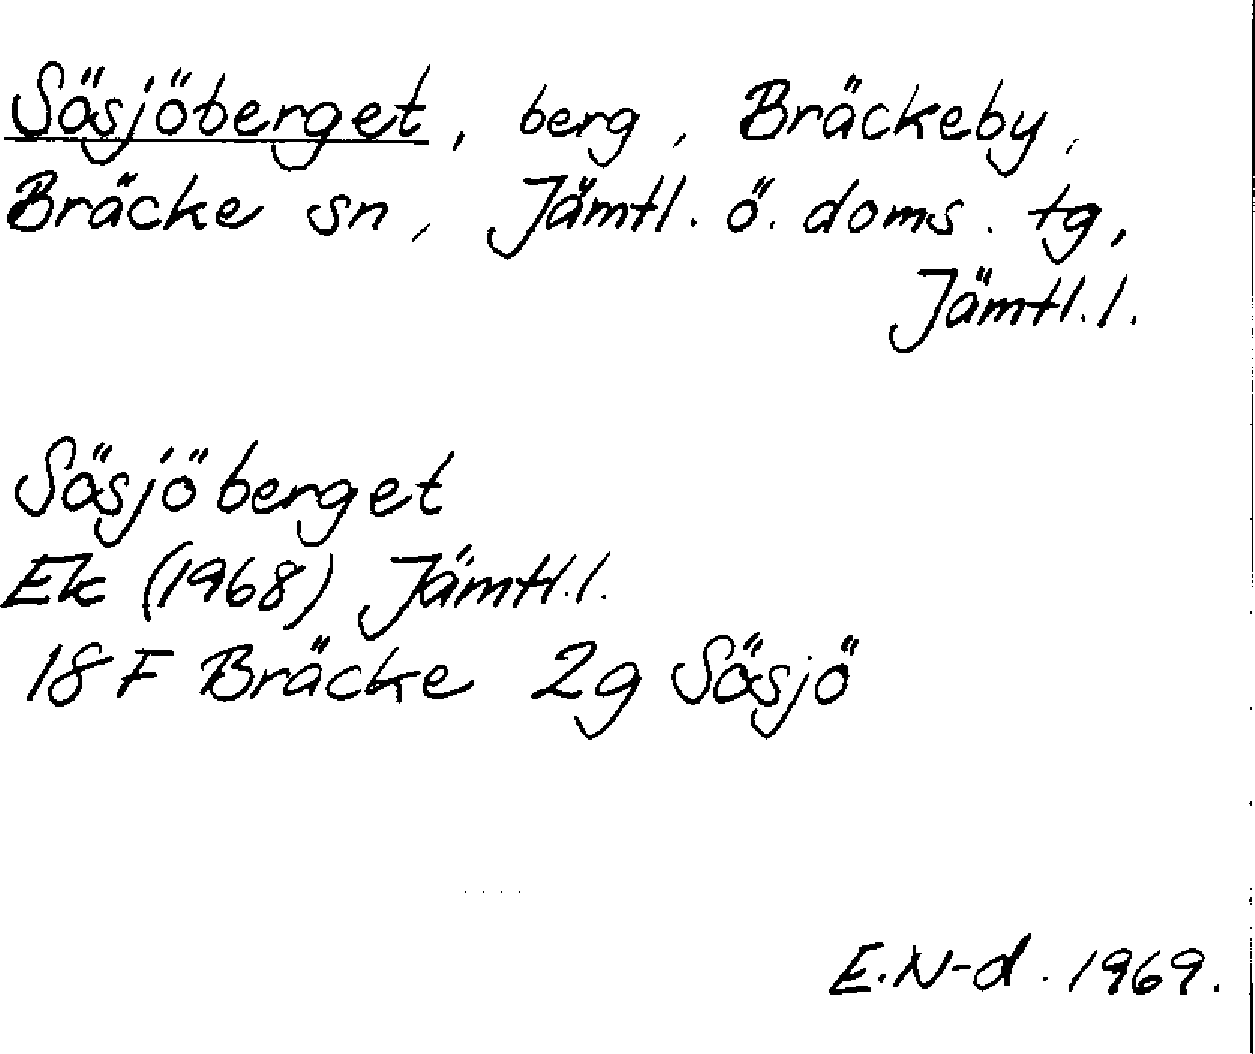 Sösjöberget, berg, Bräckeby,
Bräcke sn, Jämtl. ö. doms. tg,
Jämtl. l.
Sösjöberget
Ek (1968) Jämtl. l.
18 F Bräcke 2g Sösjö
E. N-d. 1969.